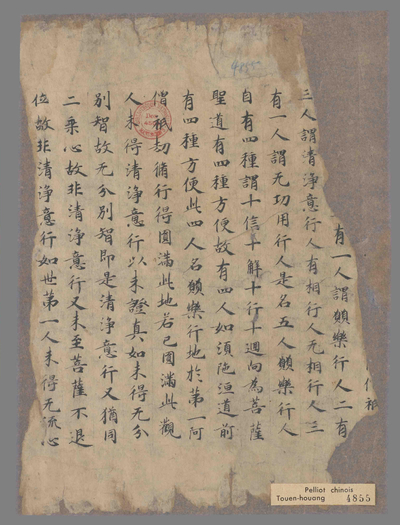 祇
有一人謂願樂行人二有
三人謂清淨意行人有相行人无相行人三
有一人謂无功用行人是名五人願樂行人
自有四種謂十信十解十行十迴向為菩薩
聖道有四種方便故有四人如須陁洹道前
有四種方便此四人名願樂行地於第一阿
僧祇劫脩行得圓滿此地若已圓滿此觀
人未得清淨意行以未證真如未得无分
別智故无分別智即是清淨意行又猶同
二乘心故非清淨意行又未至菩薩不退
位故非清淨意行如世第一人未得无流心
Pelliot chinois
Touen-houang 4855